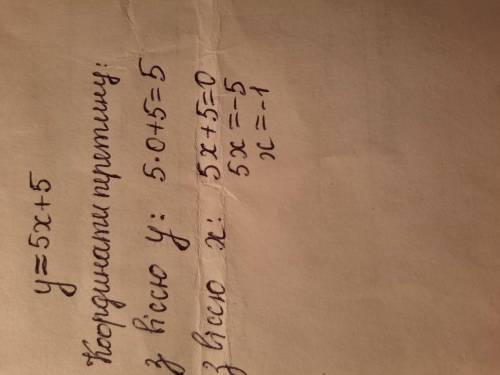 y=5x+5
Координати перетину:
з віссю y: 5·0+5=5
з віссю x: 5x+5=0
5x=-5
x=-1